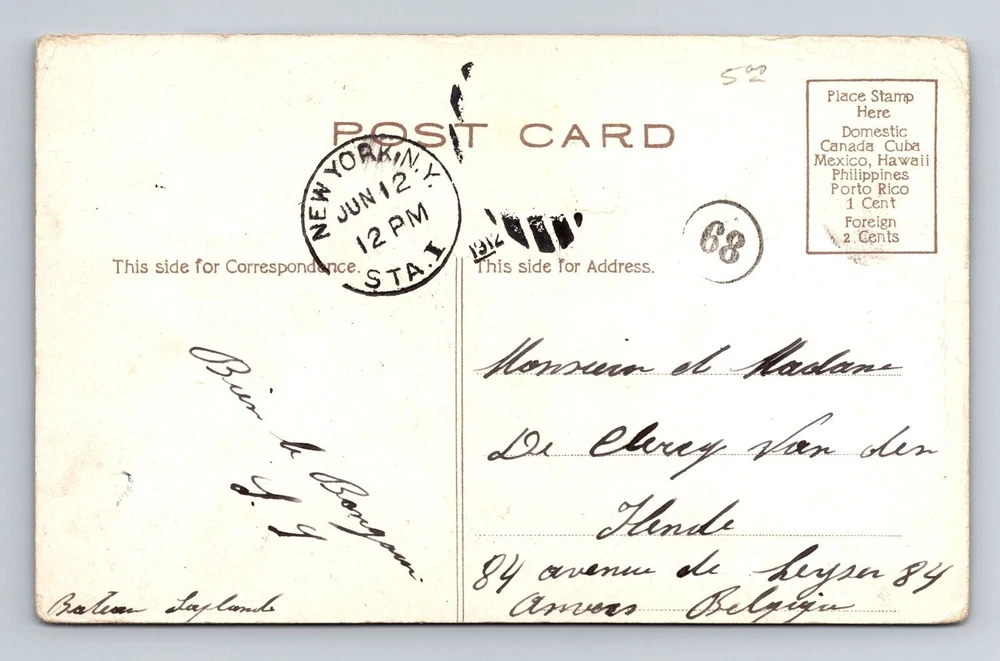 502
POST CARD
Place Stamp
Here
Domestic
Canada Cuba
Mexico, Hawaii
Philippines
Porto Rico
1 Cent
Foreign
2 Cents
NEW YORK, N.Y.
JUN 12
12 PM
STA. I
1912
68
This side for Correspondence.
This side for Address.
Bien le Bonjour
S. G
Bateau Laplande
Monsieur et Madame
De Clercq Van den
Hende
84 avenue de Keyser 84
Anvers Belgique